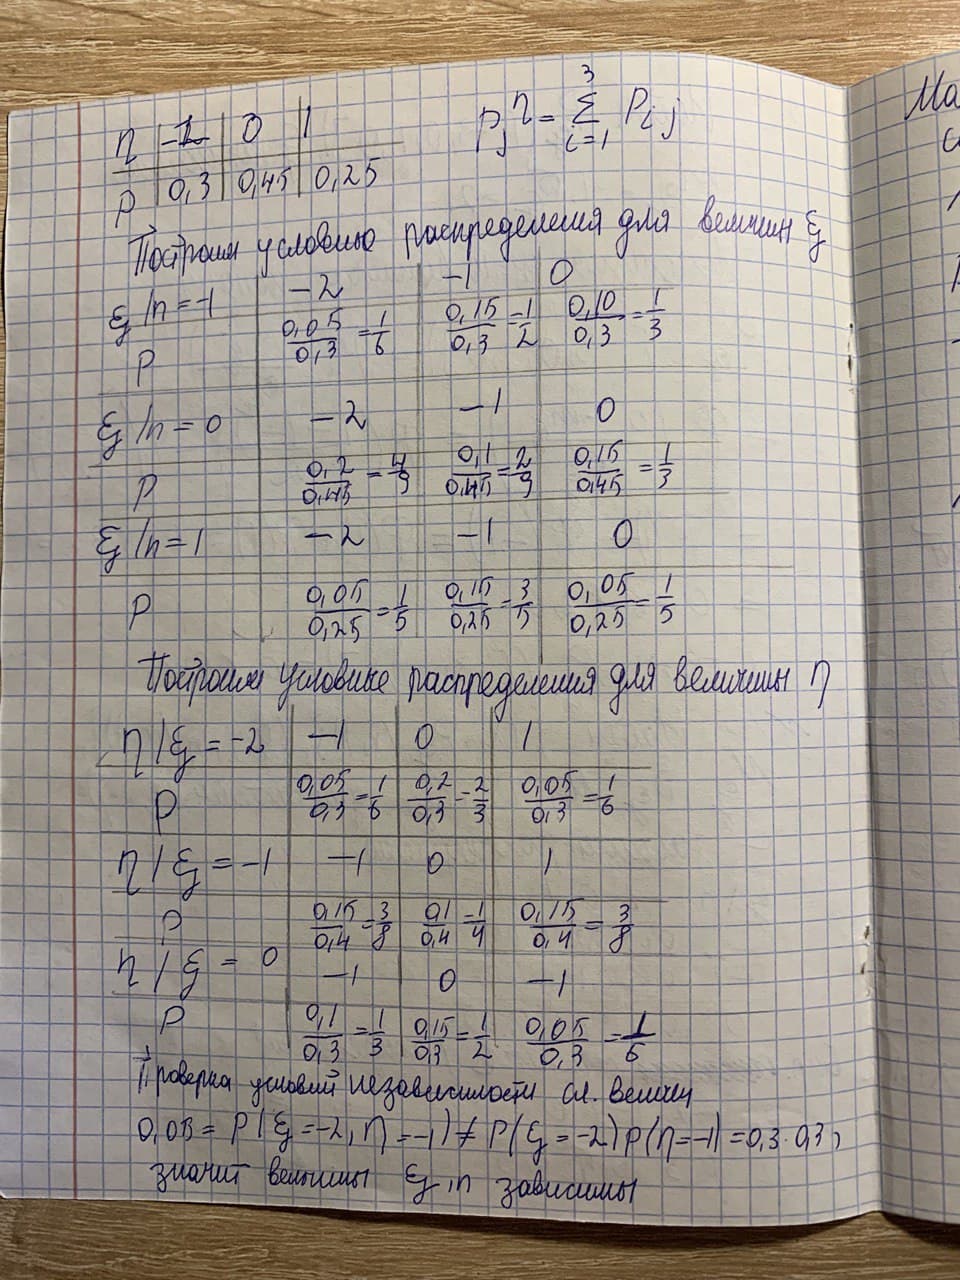 η | -1 | 0 | 1
p | 0,3 | 0,45 | 0,25
p_j^η = Σ_{i=1}^{3} p_{ij}
Построим условию распределения для величин ξ
ξ/η=-1 | -2 | -1 | 0
p | 0,05/0,3 = 1/6 | 0,15/0,3 = 1/2 | 0,10/0,3 = 1/3
ξ/η=0 | -2 | -1 | 0
p | 0,2/0,45 = 4/9 | 0,1/0,45 = 2/9 | 0,15/0,45 = 1/3
ξ/η=1 | -2 | -1 | 0
p | 0,05/0,25 = 1/5 | 0,15/0,25 = 3/5 | 0,05/0,25 = 1/5
Построим условные распределения для величины η
η/ξ=-2 | -1 | 0 | 1
p | 0,05/0,3 = 1/6 | 0,2/0,3 = 2/3 | 0,05/0,3 = 1/6
η/ξ=-1 | -1 | 0 | 1
p | 0,15/0,4 = 3/8 | 0,1/0,4 = 1/4 | 0,15/0,4 = 3/8
η/ξ=0 | -1 | 0 | -1
p | 0,1/0,3 = 1/3 | 0,15/0,3 = 1/2 | 0,05/0,3 = 1/6
Проверка условий независимости сл. величин
0,05 = P(ξ=-2, η=-1) ≠ P(ξ=-2)P(η=-1) = 0,3·0,3,
значит величины ξ, η зависимы
Ма